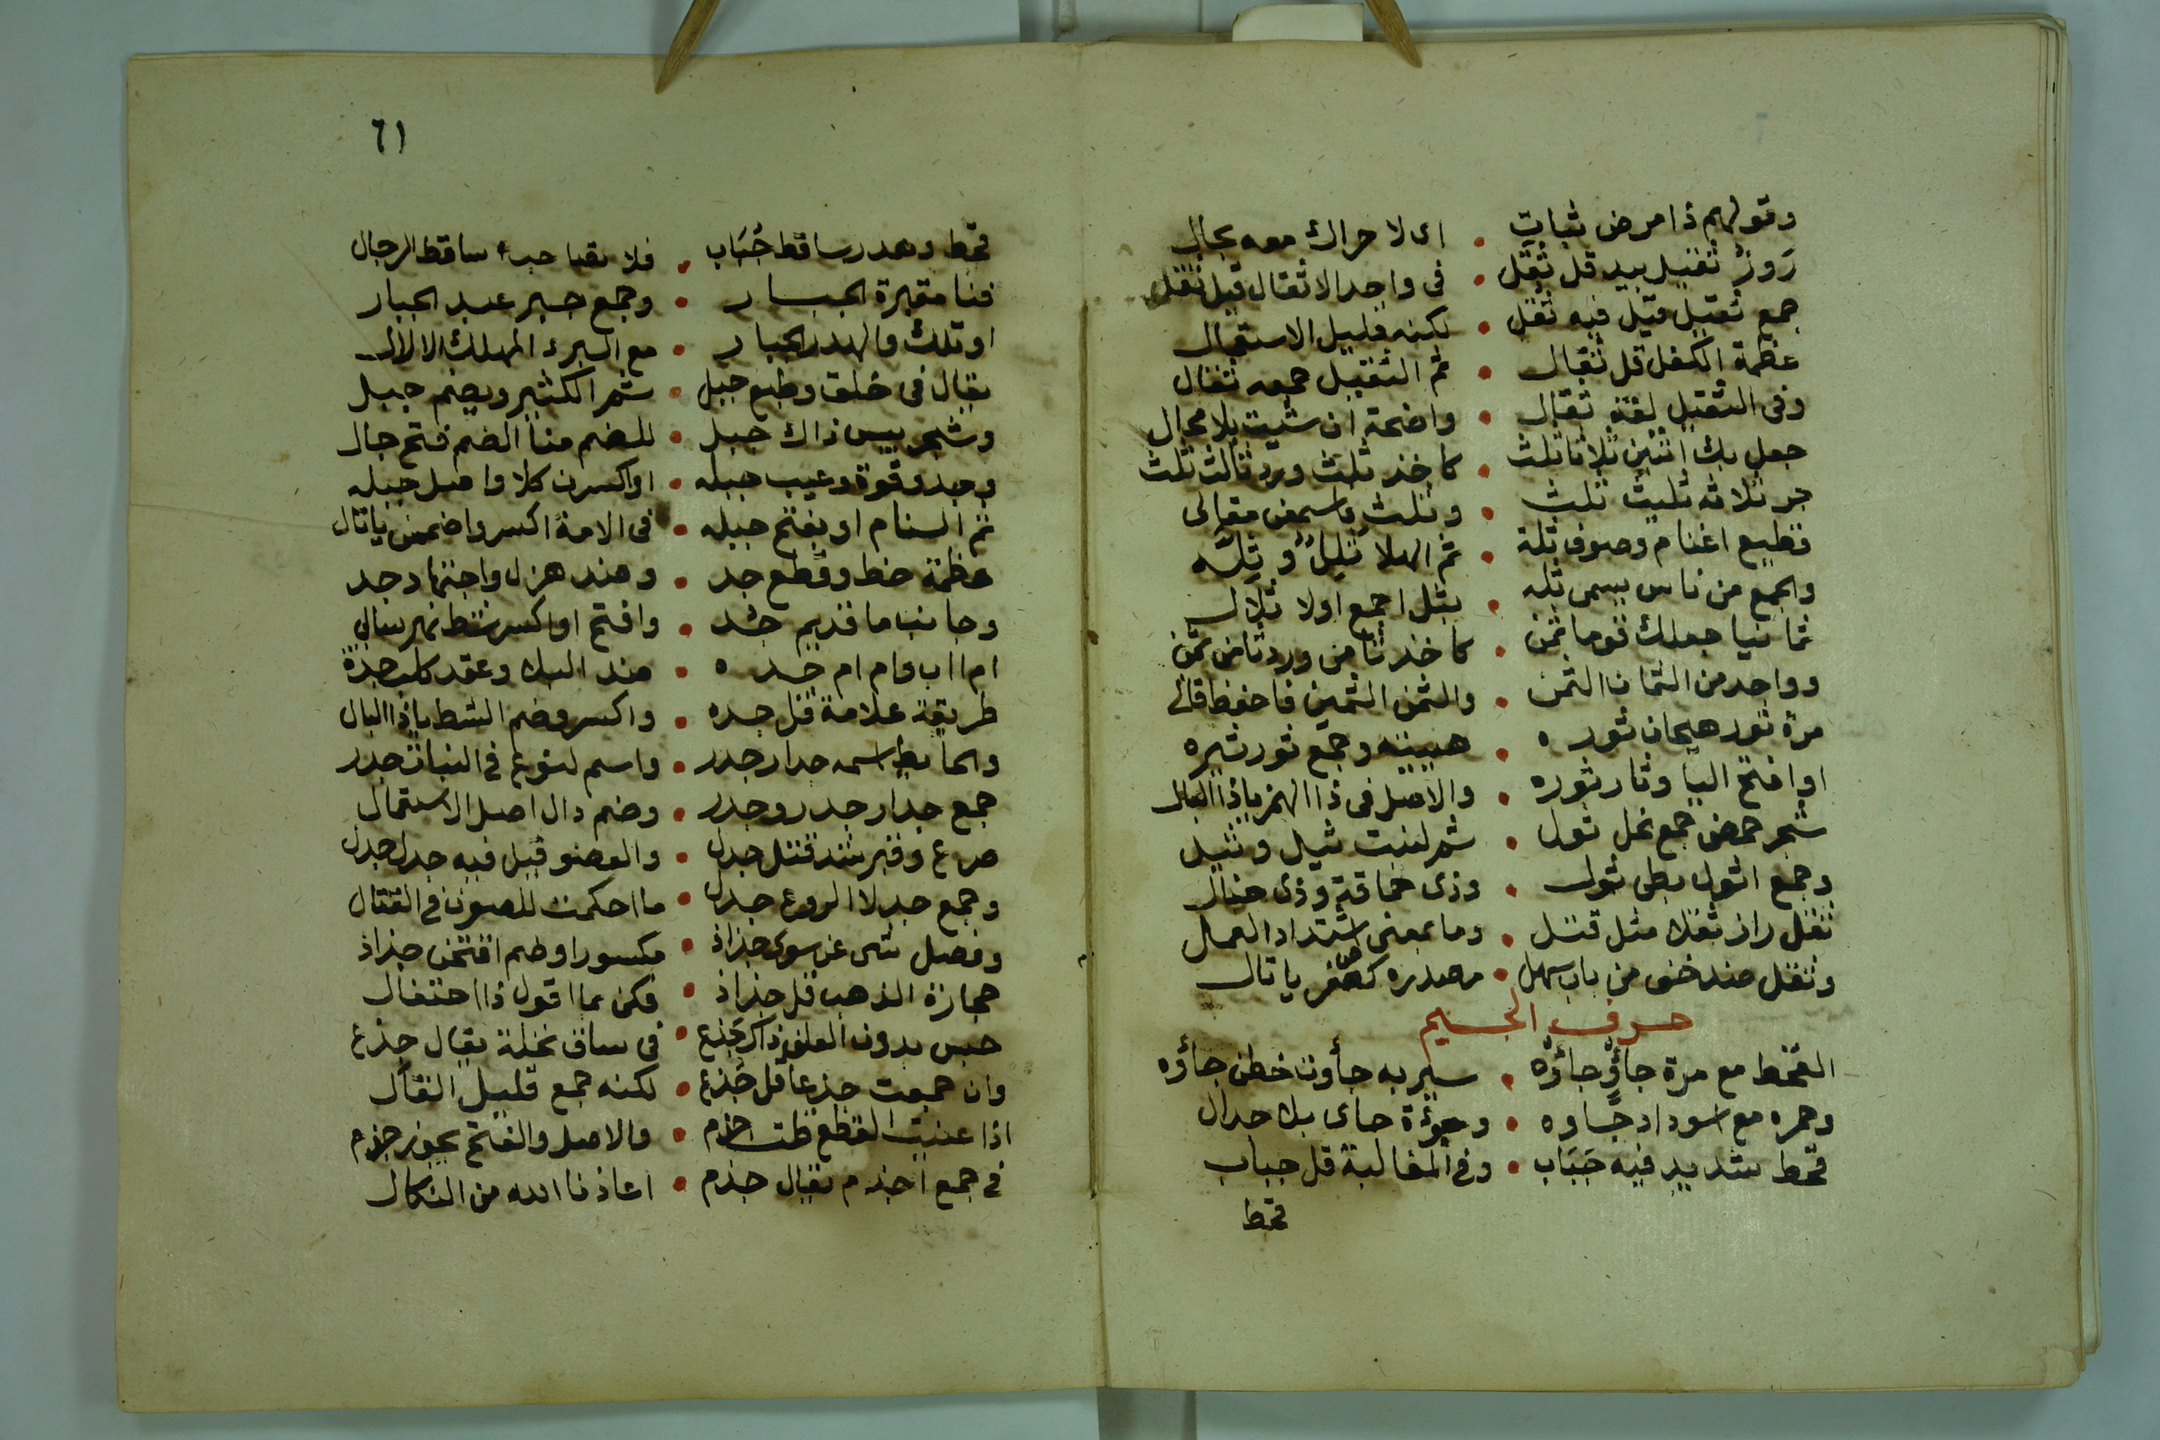 وقولهم ذا مرض ثبات • اى لا حراك معه بحال
رَوزُ ثقيل بيد قل ثَقل • فى واحد الاثقال قيل ثقل
جمع ثقيل قيل فيه ثقل • لكنه قليل الاستعمال
عظمة الكفل قل ثقال • ثم الثقيل جمعه ثقال
وفى الثقيل لغة ثقال • واضحة ان شئت بلا محال
جعل بك اثنين ثلاثا ثلث • كاخذ ثلث ورد ثالث ثلث
جر ثلاثه ثليث ثلث • وثلث واسمعن مقالى
قطيع اغنام وصوف ثلة • ثم الهلا ثليل و ثله
والجمع من ناس يسمى ثله • بثلل اجمع اولا ثلال
ثمانيا جعلك قوما ثمن • كاخذ ثامن ورد ثامن ثمن
وواحد من الثمان الثمن • والثمن الثمين فاحفظ قالى
مرة ثور هيجان ثوره • هيئته وجمع ثور ثيره
او افتح اليا وثار ثوره • والاصل فى ذا الهمز ياذا البال
شجر حمض جمع نحل ثول • ثم لنبت ثيل و ثيل
وجمع اثول بطى ثول • وذى حماقة وذى خبال
ثقل راز ثقلا مثل قتل • وما بمعنى اشتداد الحال
وثقل ضد خف من باب سهل • مصدره كصغر يا تال
حرف الجيم
القحط مع مرة جاؤ جاؤه • سير به جأوت خطن جاؤه
وحمره مع اسوداد جاوه • وجؤة جاى بلا جدال
قحط شديد فيه جَبَاب • وفى المغالبة قل جباب
قحط
٦١
قحط وهدر ساقط جُبَاب • فلا تقبا جبء ساقط الرجال
فنا مقبرة الجبار • وجمع جبر عبد الجبار
او تلك والهدر الجبار • مع البرء المهلك الاال
يقال فى خلق وطبع جبل • ثم الكثير ويضم جبل
وشجر يبس ذاك جبل • للضم منا الضم فتح جال
وجد وقوة وعيب جبله • او اكسرن كلا واصل جبله
ثم السنام او بفتح جبله • فى الامة اكسر واضممن يا تال
عظمة حظ وقطع جد • وضد هزل واجتهاد جد
وجانب ما قديم جُد • وافتح او اكسر شط نهر سال
ام اب وام ام جده • ضد البلا وعقد كلب جدة
طريقة علامة قل جده • واكسر وضم الشط ياذا البال
والحايط اسمه جدار جدر • واسم لنوع فى النبات جدر
جمع جدار جدر وجدر • وضم دال اصل الاستعمال
صرع وقهر شد فتل جدل • والعضو قيل فيه جدل جدل
وجمع جدلا الدروع جدل • ما احكمت للصون فى القتال
وفصل شى عن سوى جذاذ • مكسورا وضم افتحن جذاذ
حجازة الذهب قل جذاذ • وكن بما اقول ذا احتفال
حبس بدون العلف ذاك جذع • فى ساق نخلة يقال جذع
وان جمعت جذعا قل جُذع • لكنه جمع قليل النقال
اذا عنيت القطع ظت اجذم • والاصل والفتح يجوز جذم
فى جمع اجذم يقال جذم • اعاذنا الله من النكال